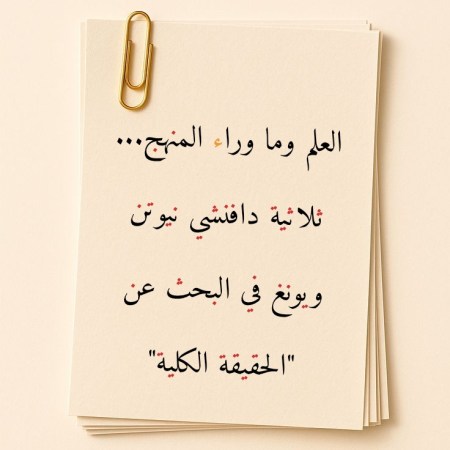 العلم وما وراء المنهج...
ثلاثية دافنشي نيوتن
ويونغ في البحث عن
"الحقيقة الكلية"